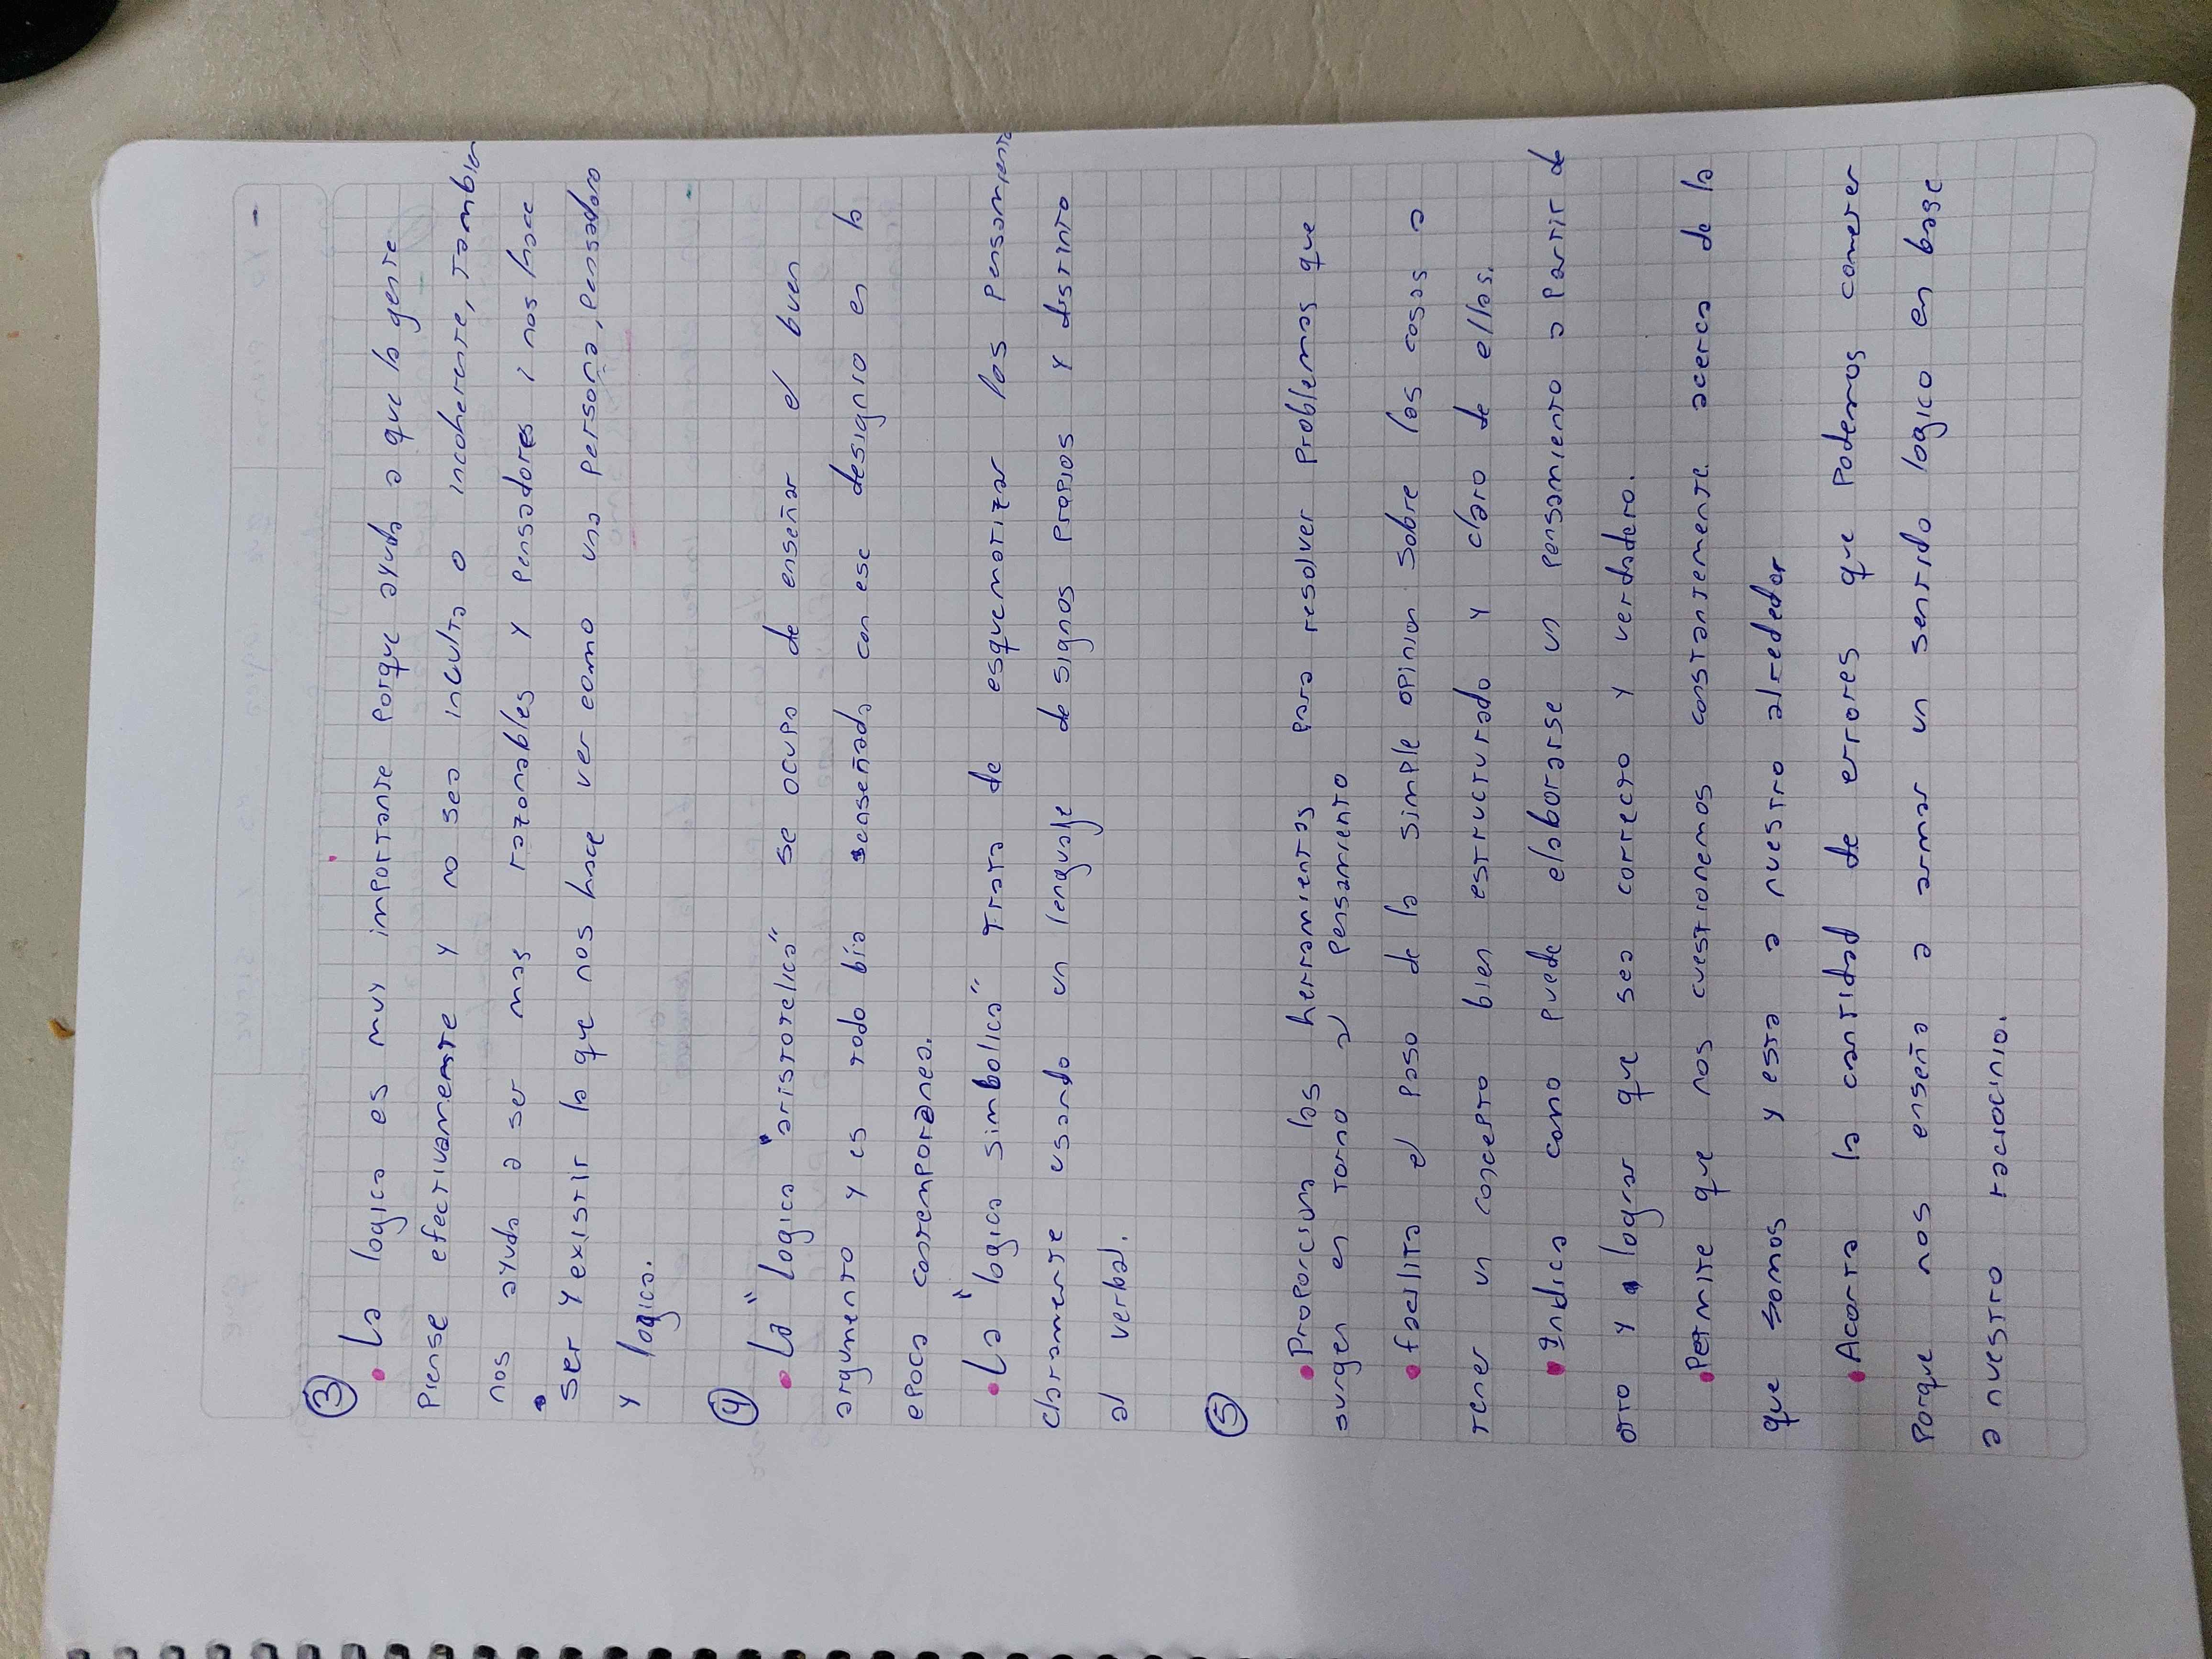 ③
• La logica es muy importante porque ayuda a que la gente
Piense efectivamente y no sea inculta o incoherente, Tambien
nos ayuda a ser mas razonables y pensadores, nos hace
ser y existir lo que nos hace ver como una persona, pensadora
y logica.
④
• La " logica "aristotelica" se ocupa de enseñar el buen
argumento y es todo bia enseñada con ese designio en la
epoca contemporanea.
• La " logica simbolica" Trata de esquematizar los pensamiento
claramente usando un lenguaje de signos propios y distinto
al verbal.
⑤
• Proporciona las herramientas para resolver problemas que
surgen en torno al pensamiento
• facilita el paso de la simple opinion sobre las cosas a
tener un concepto bien estructurado y claro de ellas.
• Indica como puede elaborarse un pensamiento a partir de
otro y lograr que sea correcto y verdadero.
• Permite que nos cuestionemos constantemente acerca de lo
que somos y esta a nuestro alrededor
• Acorta la cantidad de errores que podemos cometer
Porque nos enseña a armar un sentido logico en base
a nuestro raciocinio.